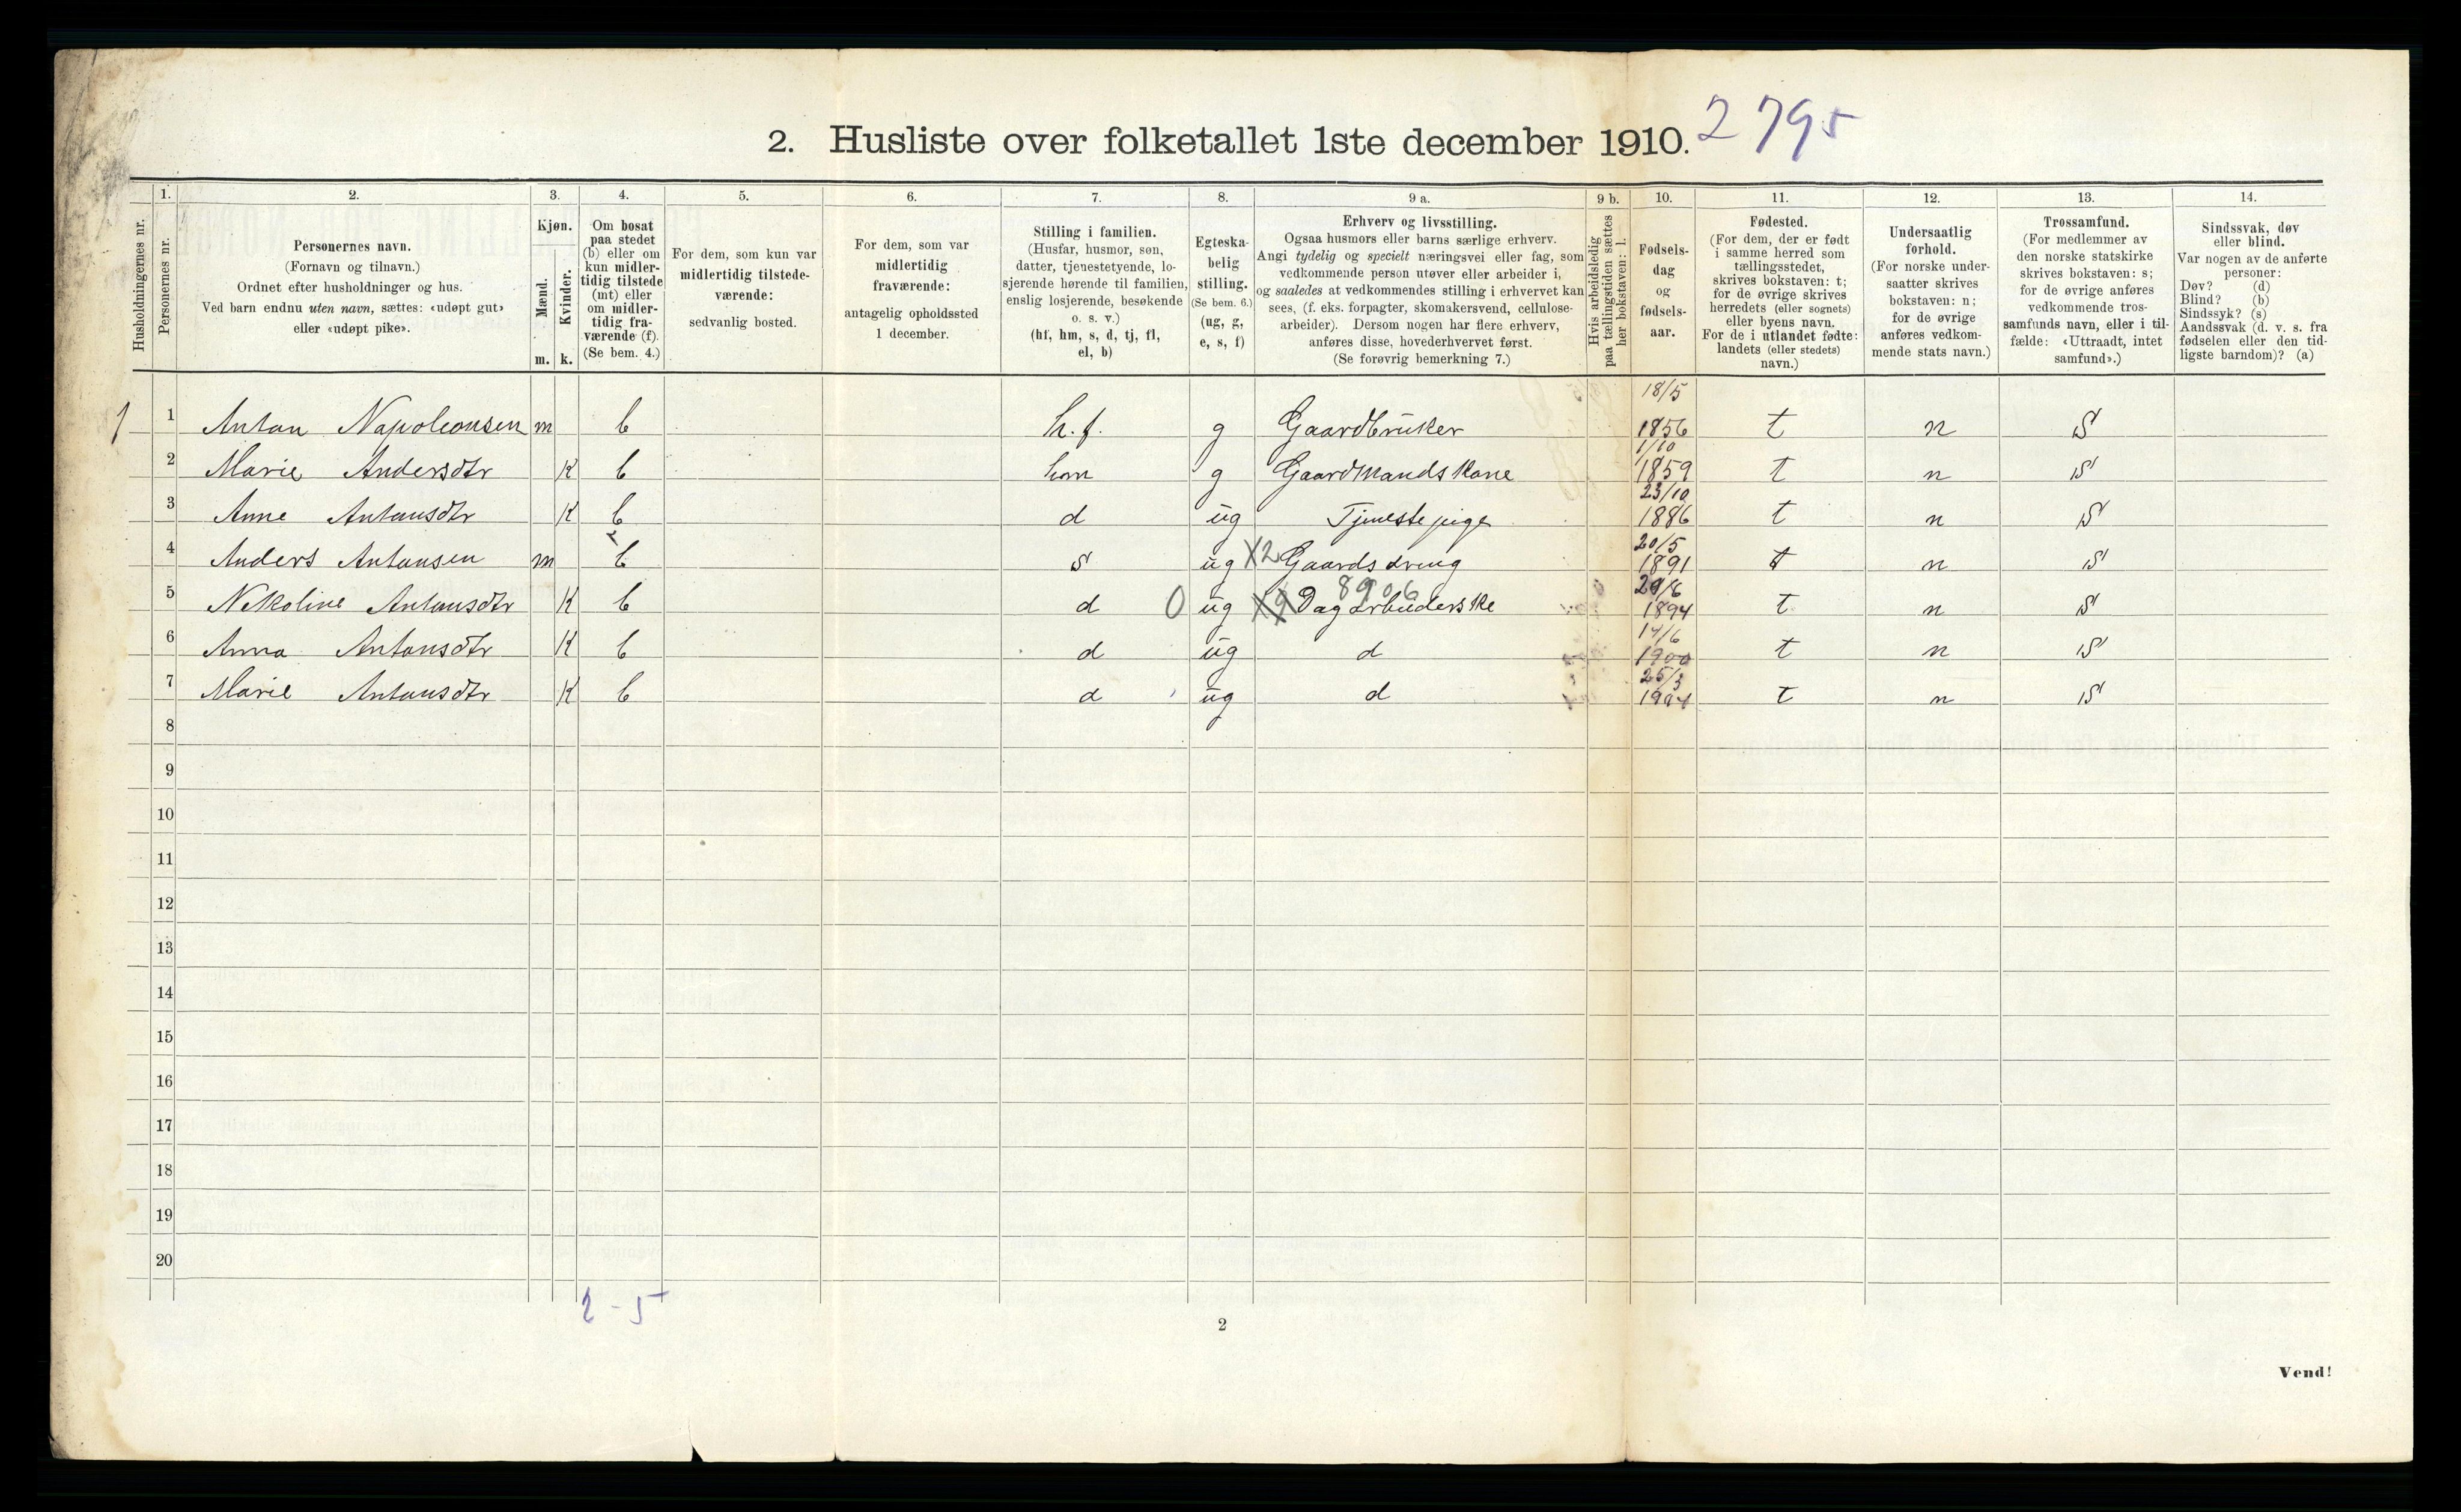 2. Husliste over folketallet 1ste december 1910. 2795
Husholdningernes nr.
1. Personernes nr.
2. Personernes navn.
(Fornavn og tilnavn.)
Ordnet efter husholdninger og hus.
Ved barn endnu uten navn, sættes: «udøpt gut»
eller «udøpt pike».
3. Kjøn.
Mænd. m.
Kvinder. k.
4. Om bosat
paa stedet
(b) eller om
kun midler-
tidig tilstede
(mt) eller
om midler-
tidig fra-
værende (f).
(Se bem. 4.)
5. For dem, som kun var
midlertidig tilstede-
værende:
sedvanlig bosted.
6. For dem, som var
midlertidig
fraværende:
antagelig opholdssted
1 december.
7. Stilling i familien.
(Husfar, husmor, søn,
datter, tjenestetyende, lo-
sjerende hørende til familien,
enslig losjerende, besøkende
o. s. v.)
(hf, hm, s, d, tj, fl,
el, b)
8. Egteska-
belig
stilling.
(Se bem. 6.)
(ug, g,
e, s, f)
9 a. Erhverv og livsstilling.
Ogsaa husmors eller barns særlige erhverv.
Angi tydelig og specielt næringsvei eller fag, som
vedkommende person utøver eller arbeider i,
og saaledes at vedkommendes stilling i erhvervet kan
sees, (f. eks. forpagter, skomakersvend, cellulose-
arbeider). Dersom nogen har flere erhverv,
anføres disse, hovederhvervet først.
(Se forøvrig bemerkning 7.)
9 b. Hvis arbeidsledig
paa tællingstiden sættes
her bokstaven: l.
10. Fødsels-
dag
og
fødsels-
aar.
11. Fødested.
(For dem, der er født
i samme herred som
tællingsstedet,
skrives bokstaven: t;
for de øvrige skrives
herredets (eller sognets)
eller byens navn.
For de i utlandet fødte:
landets (eller stedets)
navn.)
12. Undersaatlig
forhold.
(For norske under-
saatter skrives
bokstaven: n;
for de øvrige
anføres vedkom-
mende stats navn.)
13. Trossamfund.
(For medlemmer av
den norske statskirke
skrives bokstaven: s;
for de øvrige anføres
vedkommende tros-
samfunds navn, eller i til-
fælde: «Uttraadt, intet
samfund».)
14. Sindssvak, døv
eller blind.
Var nogen av de anførte
personer:
Døv? (d)
Blind? (b)
Sindssyk? (s)
Aandssvak (d. v. s. fra
fødselen eller den tid-
ligste barndom)? (a)
1 1 Anton Napoleonsen m b h.f. g Gaardbruker 18/5 1856 t n S
2 Marie Andersdtr K b hm g Gaardmandskone 1/10 1859 t n S
3 Anne Antonsdtr K b d ug Tjenestepige 23/10 1886 t n S
4 Anders Antonsen m b s ug X2 Gaardsdreng 20/5 1891 t n S
8906
5 Nekoline Antonsdtr K b d 0 ug Dagarbuderske 29/6 1894 t n S
6 Anna Antonsdtr K b d ug d 14/6 1900 t n S
7 Marie Antonsdtr K b d ug d 25/3 1904 t n S
8
9
10
11
12
13
14
15
16
17
18
19
20
2 - 5
2
Vend!